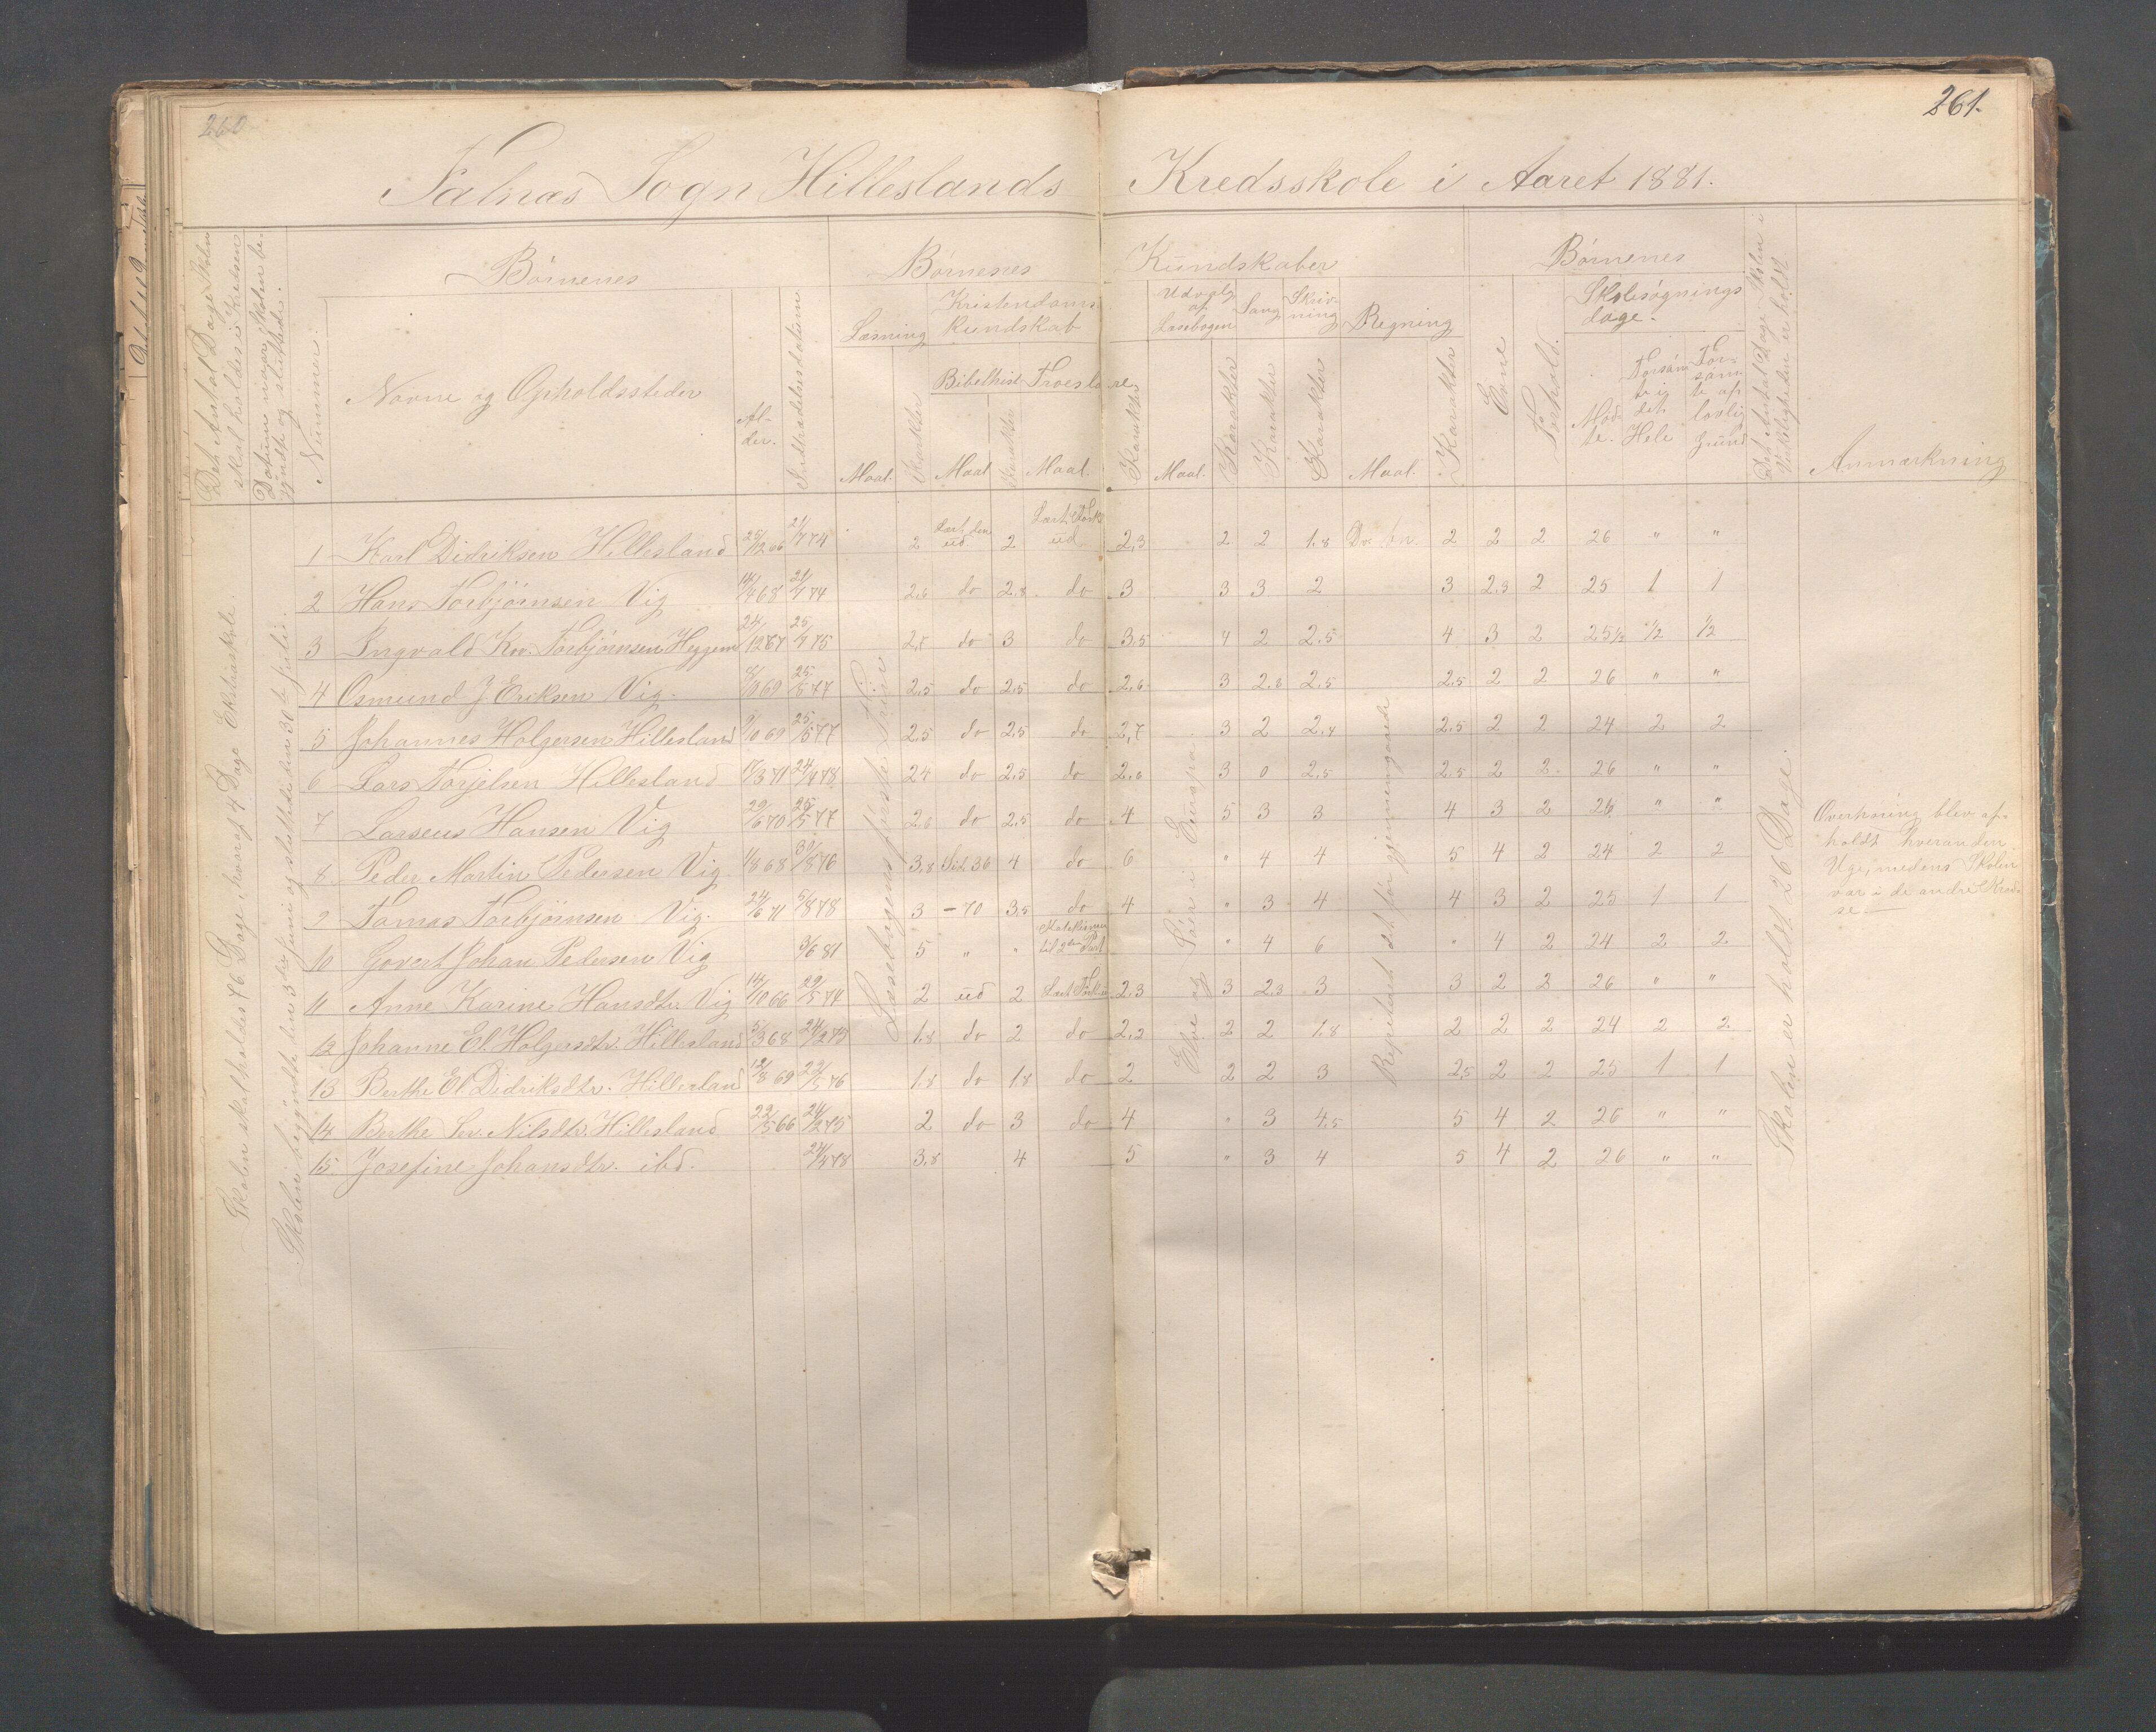 260
261.
Falnæs Sogn Hilleslands Kredsskole i Aaret 1881.
Det Antal Dage Skolen skal holdes i Kredsen
Datum naar Skolen begyndte og sluttede.
Nummer.
Børnenes
Navne og Opholdssteder
Alder.
Indtrædelsesdatum
Børnenes Kundskaber
Læsning
Kristendomskundskab
Udvalg af Læsebogen
Sang
Skrivning
Regning
Bibelhist.
Troeslære
Maal. Karakter Maal Karakter Maal. Karakter Maal. Karakter Karakter Karakter Maal. Karakter
Børnenes
Evne
Forhold.
Skolesøgningsdage.
Mødte.
Forsømte i det Hele
Forsømte af lovlig Grund
Det Antal Dage Skolen i Virkeligheden er holdt.
Anmærkning
1 Karl Didriksen Hillesland 25/12 66 21/7 74 2 Læst den ud 2 Læst Forkl ud 2,3 2 2 1.8 2 2 2 26 " "
2 Hans Torbjørnsen Vig 14/4 68 21/7 74 2.6 do 2.8 do 3 3 3 2 3 2.3 2 25 1 1
3 Ingvald Kor. Torbjørnsen Heggem 24/12 67 25/7 75 2,5 do 3 do 3.5 4 2 2.5 4 3 2 25½ ½ ½
4 Osmund J Eriksen Vig. 8/10 69 25/5 77 2,5 do 2,5 do 2,6 3 2.8 2.5 2.5 2 2 26 " "
5 Johannes Holgersen Hillesland 9/10 69 25/5 77 2.5 do 2,5 do 2,7 3 2 2.4 2.5 2 2 24 2 2
6 Lars Torjelsen Hillesland 17/3 71 24/4 78 2.4 do 2.5 do 2.6 3 0 2.5 2.5 2 2 26 " "
7 Larseus Hansen Vig 29/6 70 25/5 77 2.6 do 2.5 do 4 5 3 3 4 3 2 26 " "
8 Peder Martin Pedersen Vig 1/8 68 30/8 76 3.8 Sid. 36 4 do 6 " 4 4 5 4 2 24 2 2
9 Tomas Torbjørnsen Vig. 24/6 71 5/8 78 3 - 70 3,5 do 4 " 3 4 4 3 2 25 1 1
10 Govert Johan Pedersen Vig 3/6 81 5 " " til 2den Part " 4 6 " 4 2 24 2 2
11 Anne Karine Hansdtr. Vig 14/10 66 29/5 74 2 ud 2 Læst Forkl 2.3 3 2.3 3 3 2 2 26 " "
12 Johanne El. Holgersdtr. Hillesland 5/3 68 24/2 75 1.8 do 2 do 2,2 2 2 1.8 2 2 2 24 2 2
13 Berthe El. Didriksdtr. Hillesland 12/8 69 22/5 76 1.8 do 1.8 do 2 2 2 3 2,5 2 2 25 1 1
14 Berthe Ser. Nilsdtr. Hillesland 22/5 66 24/2 75 2 do 3 do 4 " 3 4.5 5 4 2 26 " "
15. Josefine Johansdtr. ibd. 24/4 78 3.8 4 5 " 3 4 5 4 2 26 " "
Skolen skal holdes 76 Dage, hvoraf 4 Dage Ekstraskole.
Skolen begyndte den 3die Juni og sluttede den 30te Julie.
Læsebogens første Trin
Elve og Søer i Europa
Repeteret det før gjennemgaaede
Skolen er holdt 26 Dage.
Overhøring blev afholdt hveranden Uge, medens Skolen var i de andre Kredse. —